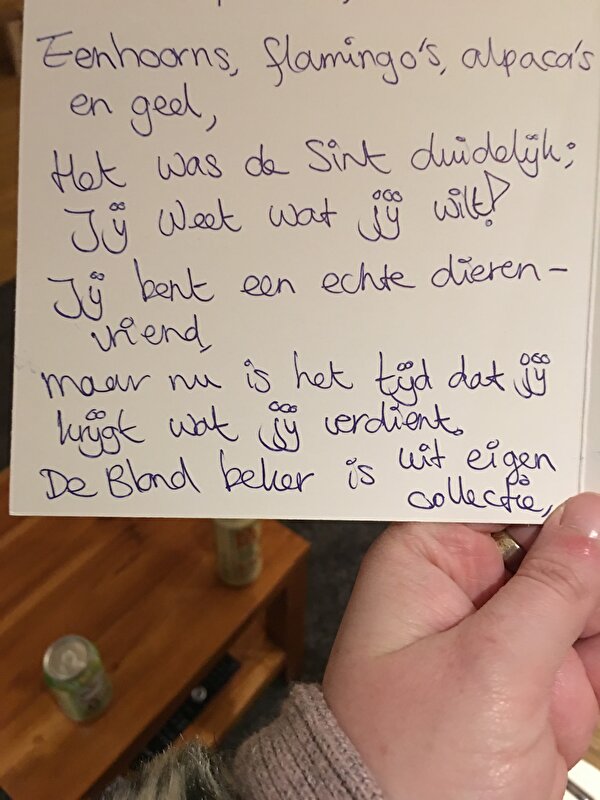 Eenhoorns, flamingo's, alpaca's
en geel,
Het was de Sint duidelijk;
Jij weet wat jij wilt!
Jij bent een echte dieren-
vriend,
maar nu is het tijd dat jij
krijgt wat jij verdient.
De Blond beker is uit eigen
collectie,